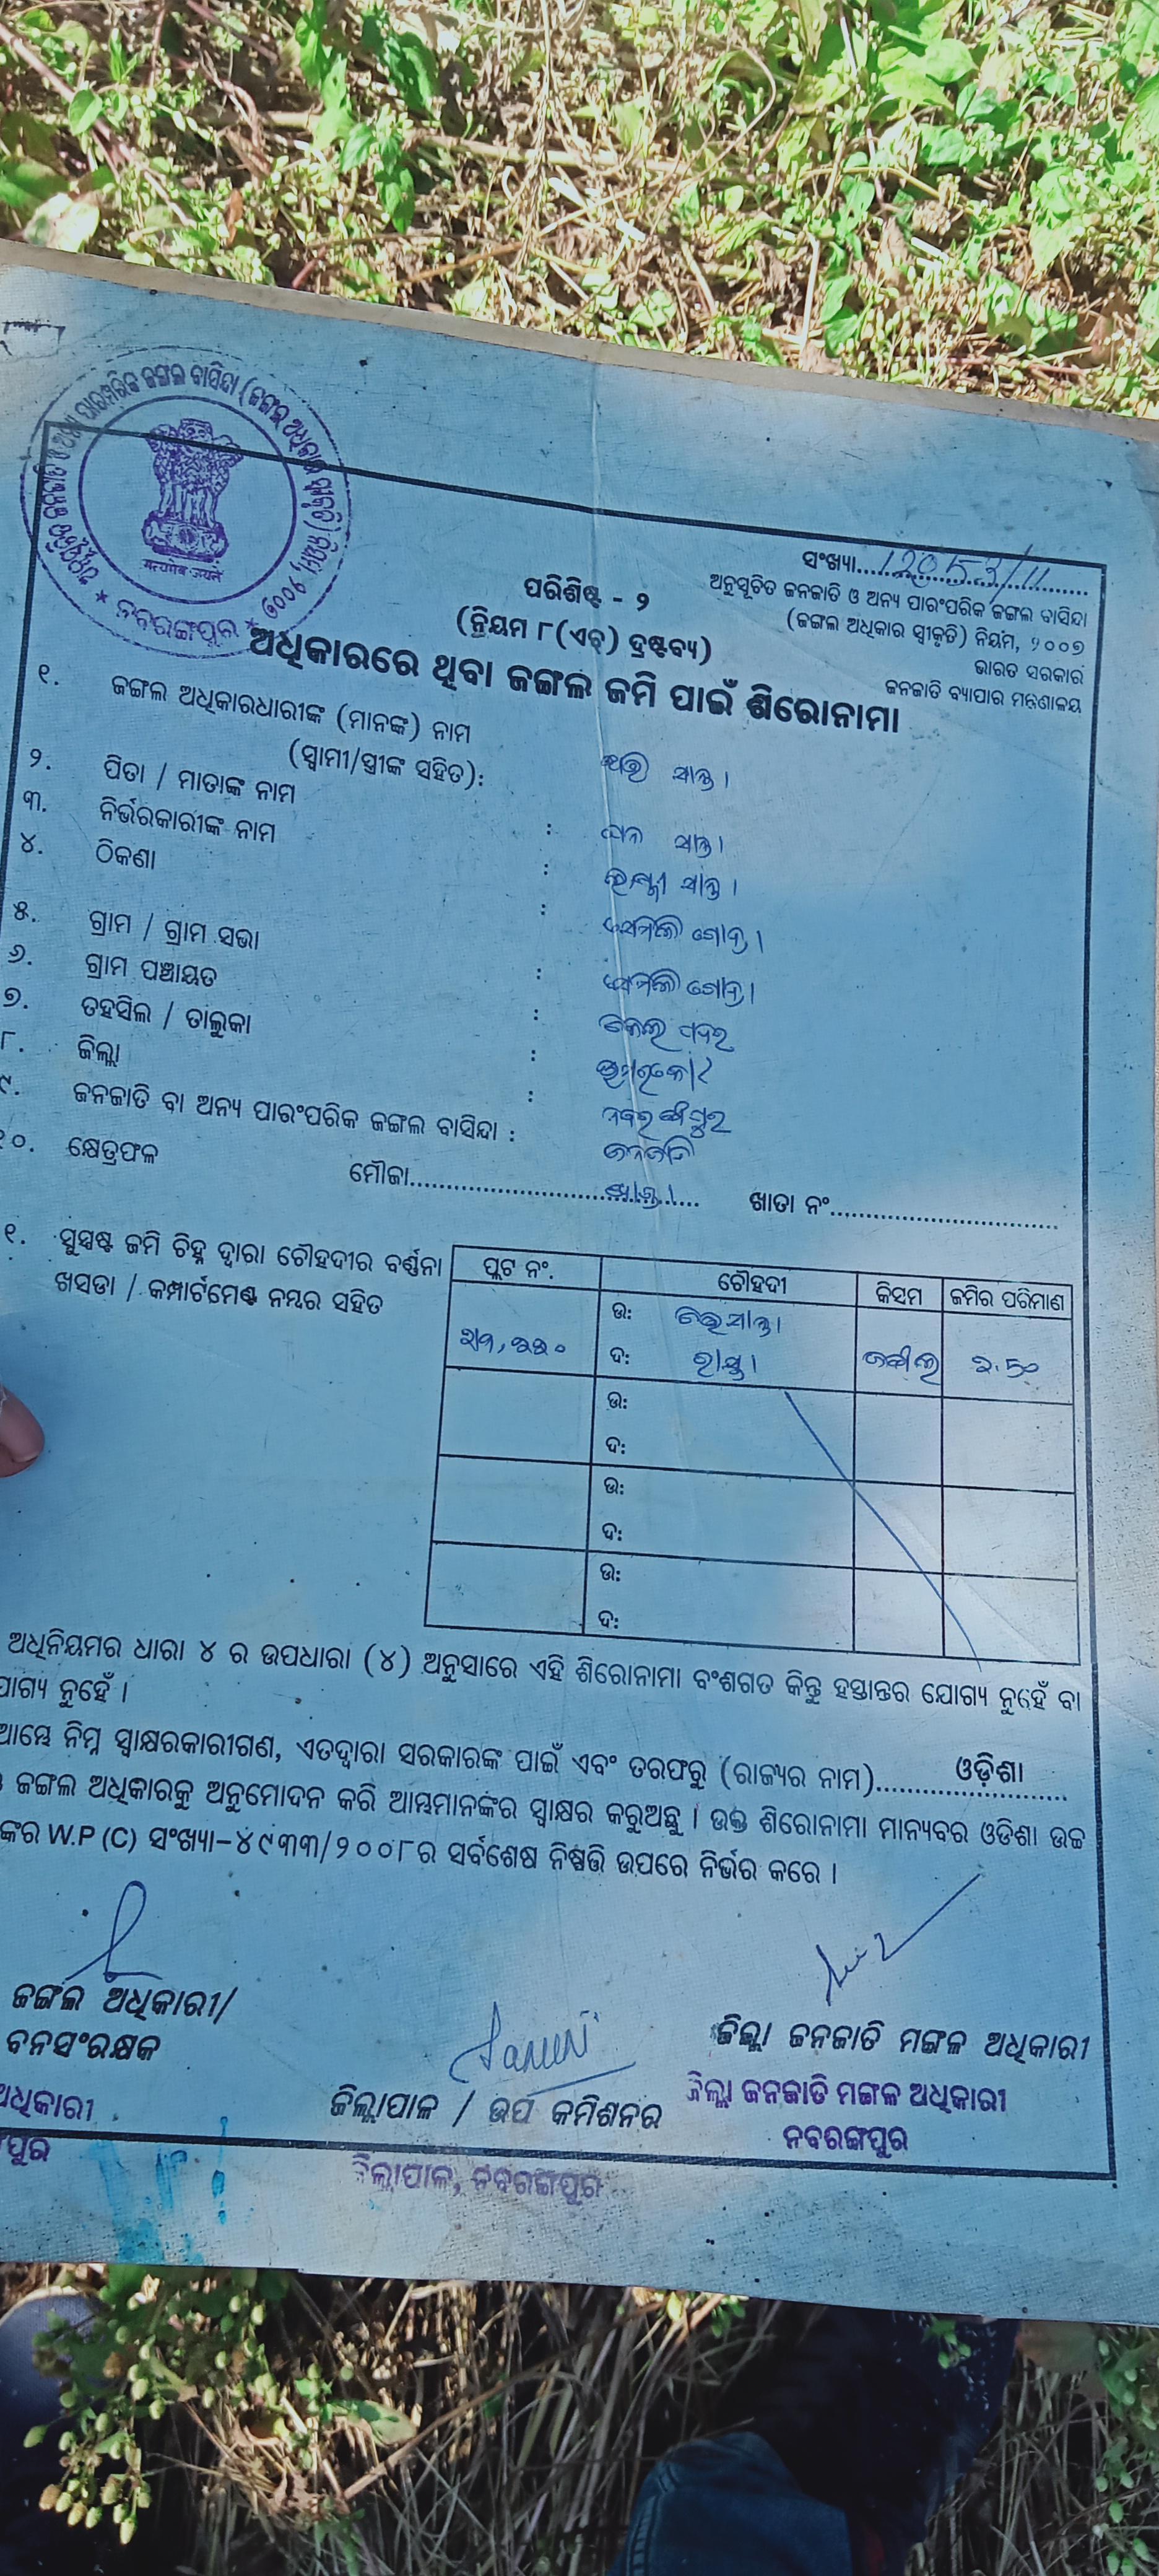 ସଂଖ୍ୟା....12053/11....
ଅନୁସୂଚିତ ଜନଜାତି ଓ ଅନ୍ୟ ପାରଂପରିକ ଜଙ୍ଗଲ ବାସିନ୍ଦା
(ଜଙ୍ଗଲ ଅଧିକାର ସ୍ୱୀକୃତି) ନିୟମ, ୨୦୦୭
ଭାରତ ସରକାର
ଜନଜାତି ବ୍ୟାପାର ମନ୍ତ୍ରଣାଳୟ
ପରିଶିଷ୍ଟ - ୨
(ନିୟମ ୮(ଏଚ୍) ଦ୍ରଷ୍ଟବ୍ୟ)
ଅଧିକାରରେ ଥିବା ଜଙ୍ଗଲ ଜମି ପାଇଁ ଶିରୋନାମା
सत्यमेव जयते
ନବରଙ୍ଗପୁର
୧. ଜଙ୍ଗଲ ଅଧିକାରଧାରୀଙ୍କ (ମାନଙ୍କ) ନାମ
(ସ୍ୱାମୀ/ସ୍ତ୍ରୀଙ୍କ ସହିତ): ସାନ୍ତା
୨. ପିତା / ମାତାଙ୍କ ନାମ : ସାନ୍ତା
୩. ନିର୍ଭରକାରୀଙ୍କ ନାମ : ସାନ୍ତା
୪. ଠିକଣା :
୫. ଗ୍ରାମ / ଗ୍ରାମ ସଭା :
୬. ଗ୍ରାମ ପଞ୍ଚାୟତ :
୭. ତହସିଲ / ତାଲୁକା : ଉମରକୋଟ
୮. ଜିଲ୍ଲା : ନବରଙ୍ଗପୁର
୯. ଜନଜାତି ବା ଅନ୍ୟ ପାରଂପରିକ ଜଙ୍ଗଲ ବାସିନ୍ଦା : ଜନଜାତି
୧୦. କ୍ଷେତ୍ରଫଳ ମୌଜା........ ଖାତା ନଂ........
୧. ସୁସ୍ପଷ୍ଟ ଜମି ଚିହ୍ନ ଦ୍ୱାରା ଚୌହଦୀର ବର୍ଣ୍ଣନା
ଖସଡା / କମ୍ପାର୍ଟମେଣ୍ଟ ନମ୍ବର ସହିତ
ପ୍ଲଟ ନଂ. ଚୌହଦୀ କିସମ ଜମିର ପରିମାଣ
ଉ: ସାନ୍ତା
ଦ: ରାସ୍ତା ଜଙ୍ଗଲ ୨.୫୦
ଉ:
ଦ:
ଉ:
ଦ:
ଉ:
ଦ:
ଅଧିନିୟମର ଧାରା ୪ ର ଉପଧାରା (୪) ଅନୁସାରେ ଏହି ଶିରୋନାମା ବଂଶଗତ କିନ୍ତୁ ହସ୍ତାନ୍ତର ଯୋଗ୍ୟ ନୁହେଁ ବା
ନୁହେଁ ।
ଆମ୍ଭେ ନିମ୍ନ ସ୍ୱାକ୍ଷରକାରୀଗଣ, ଏତଦ୍ୱାରା ସରକାରଙ୍କ ପାଇଁ ଏବଂ ତରଫରୁ (ରାଜ୍ୟର ନାମ)....ଓଡ଼ିଶା....
ଜଙ୍ଗଲ ଅଧିକାରକୁ ଅନୁମୋଦନ କରି ଆମ୍ଭମାନଙ୍କର ସ୍ୱାକ୍ଷର କରୁଅଛୁ । ଉକ୍ତ ଶିରୋନାମା ମାନ୍ୟବର ଓଡିଶା ଉଚ୍ଚ
ଙ୍କର W.P (C) ସଂଖ୍ୟା-୪୯୩୩/୨୦୦୮ର ସର୍ବଶେଷ ନିଷ୍ପତ୍ତି ଉପରେ ନିର୍ଭର କରେ ।
ଜଙ୍ଗଲ ଅଧିକାରୀ/
ବନସଂରକ୍ଷକ
ଜିଲ୍ଲାପାଳ / ଉପ କମିଶନର
ଜିଲ୍ଲା ଜନଜାତି ମଙ୍ଗଳ ଅଧିକାରୀ
ଜିଲ୍ଲା ଜନଜାତି ମଙ୍ଗଳ ଅଧିକାରୀ
ନବରଙ୍ଗପୁର
ଅଧିକାରୀ
ଜିଲ୍ଲାପାଳ, ନବରଙ୍ଗପୁର